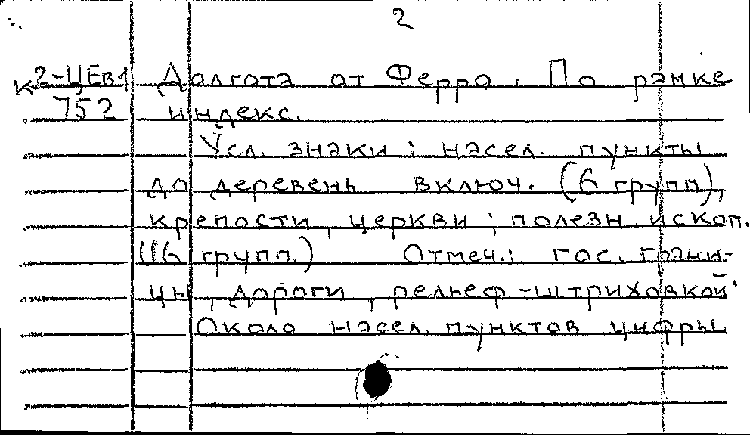 2
К 2-ЦЕв1 Долгота от Ферро. По рамке
752 индекс.
Усл. знаки: насел. пункты
до деревень включ. (6 групп),
крепости, церкви; полезн. ископ.
(16 групп.) Отмеч.: гос. грани-
цы, дороги, рельеф-штриховкой.
Около насел. пунктов цифры